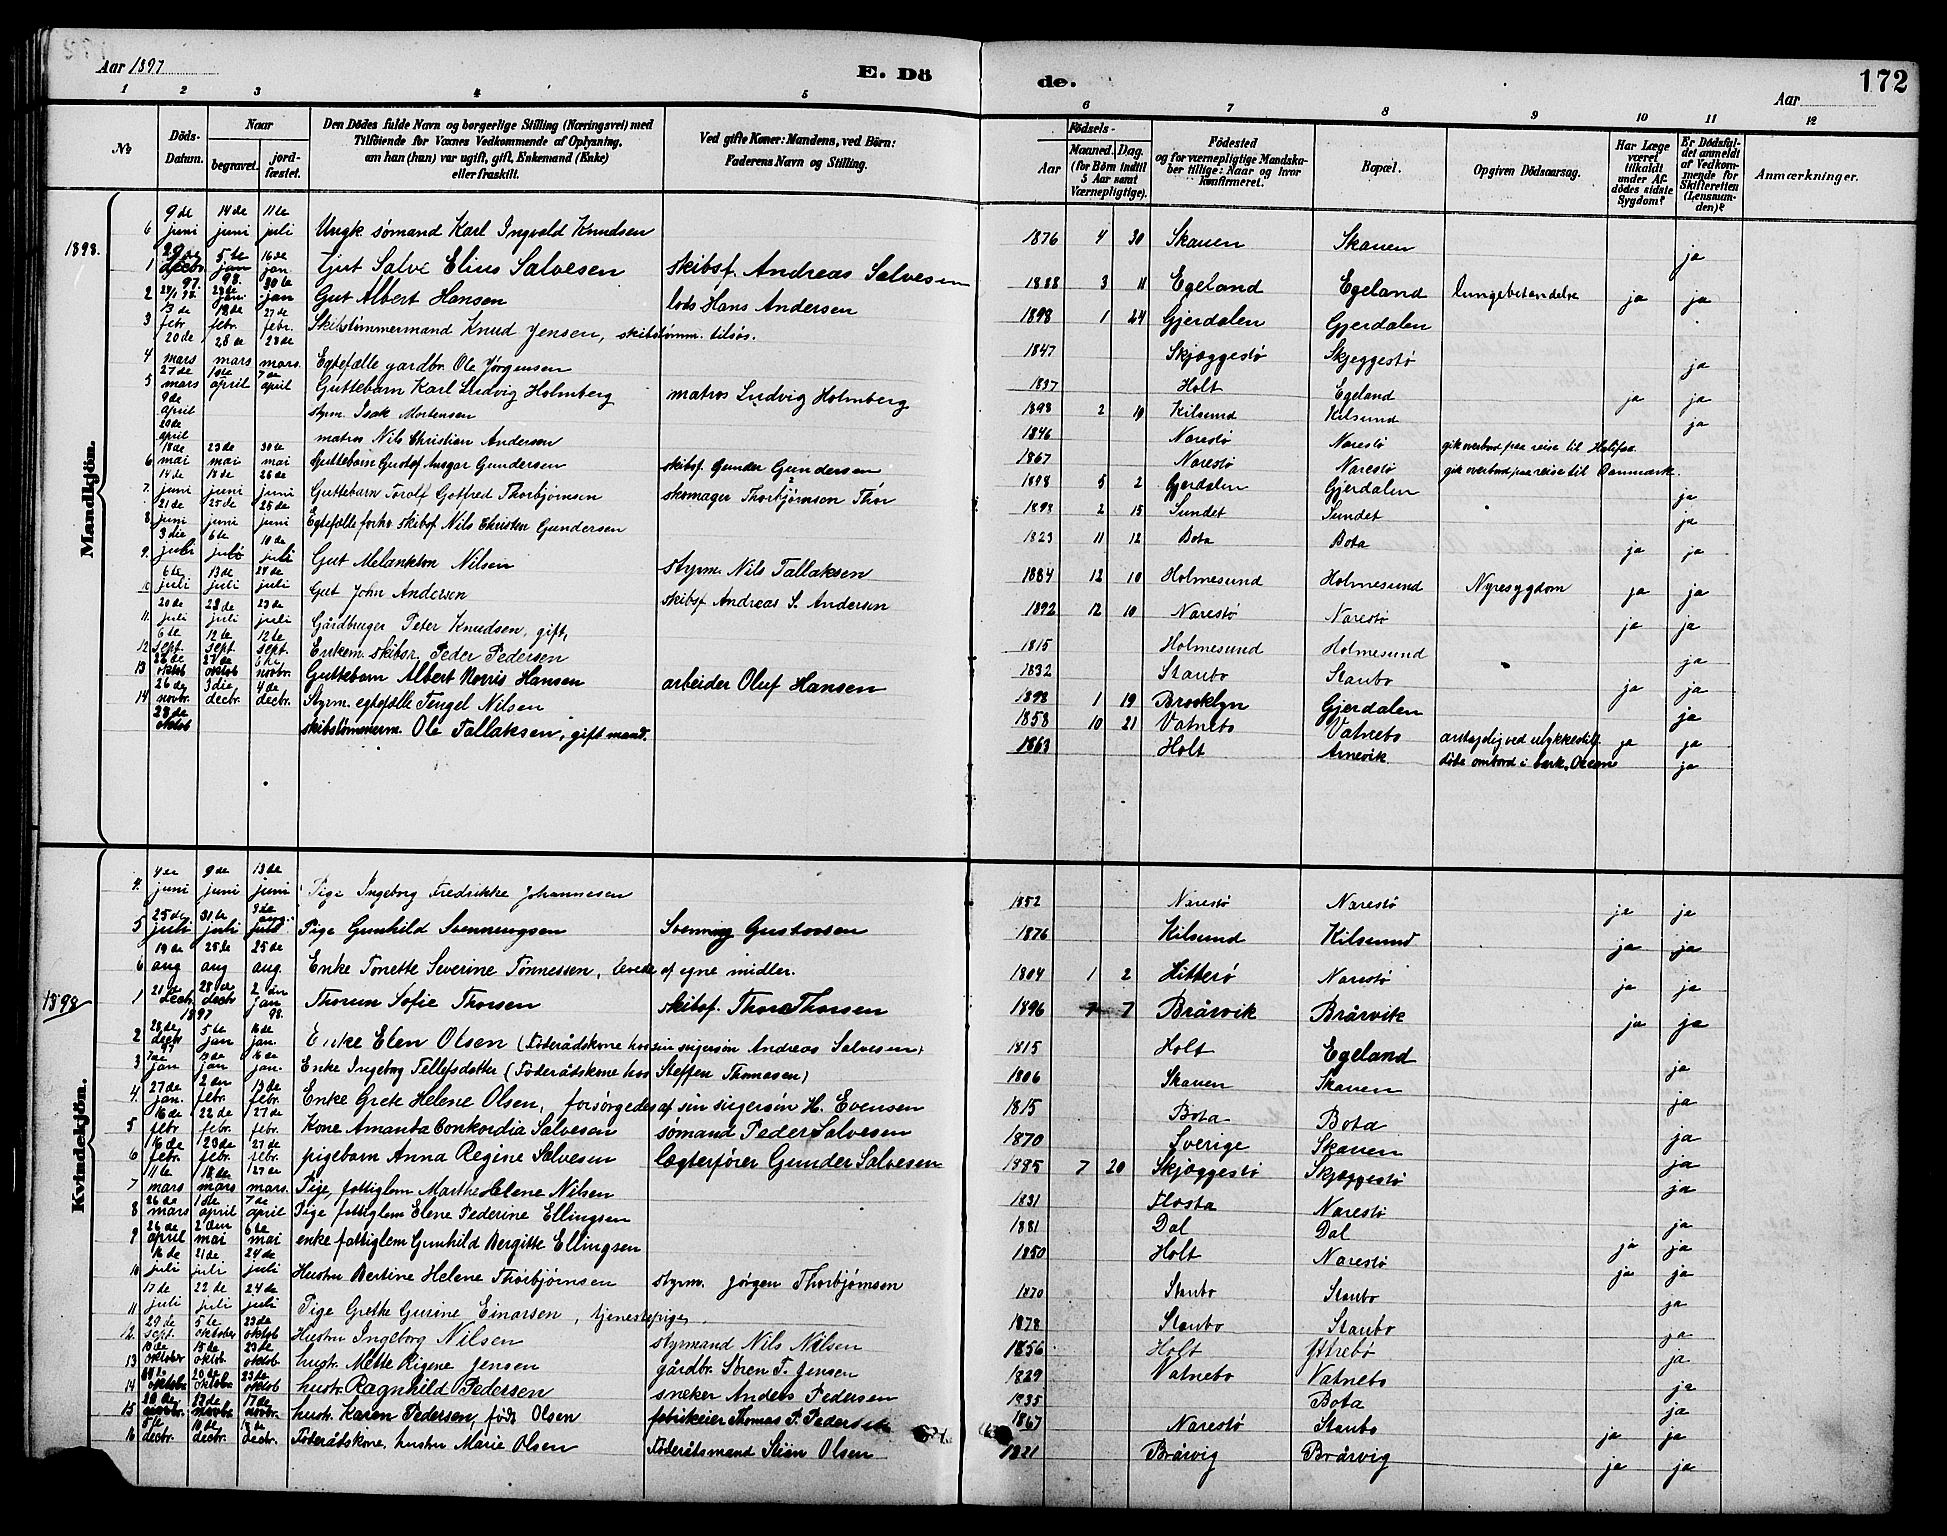 Aar 1897
E. Dö
de.
Aar
172
1 2 3 4 5 6 7 8 9 10 11 12
No
Döds-Datum.
Naar
begravet.
jord-fæstet.
Den Dödes fulde Navn og borgerlige Stilling (Næringsvei) med
Tilföiende for Voxnes Vedkommende af Oplysning,
om han (hun) var ugift, gift, Enkemand (Enke)
eller fraskilt.
Ved gifte Koner: Mandens, ved Börn:
Faderens Navn og Stilling.
Födsels-
Aar
Maaned. Dag.
(for Börn indtil
5 Aar samt
Værnepligtige).
Födested
og for værnepligtige Mandska-
ber tillige: Naar og hvor
konfirmeret.
Bopæl.
Opgiven Dödsaarsag.
Har Læge
været
tilkaldt
under Af-
dödes sidste
Sygdom?
Er Dödsfal-
det anmeldt
af Vedkom-
mende for
Skifteretten
(Lensman-
den)?
Anmærkninger.
Mandkjön.
6 9de juni 14de juni 11te juli Ungk. sømand Karl Ingvald Knudsen 1876 4 30 Skauen Skauen ja
1898.
1 29de decbr 97. 5te jan 98. 16de jan. Gut Salve Elius Salvesen skibsf. Andreas Salvesen 1888 3 11 Egeland Egeland lungebetendelse ja ja
2 jan Gut Albert Hansen lods Hans Andersen 1898 1 24 Gjerdalen Gjerdalen
3 13de febr 18de febr. 27de febr. Skibstimmermand Knud Jensen, skibstømm. tilsøs. 1847 Skjæggestø Skjeggestø ja
4 20de mars 28de mars 28de mars. Egtefælle gardbr. Ole Jørgensen 1837 Holt Egeland ja ja
5 27de mars 1de april 7de april Guttebarn Karl Ludvig Holmberg matros Ludvig Holmberg 1898 2 19 Kilsund Kilsund ja
9de april styrm. Isak Mortensen 1846 Narestø Narestø gik overbord paa reise til Halifax.
20de april matros Nils Christian Andersen 1867 Narestø Narestø gik overbord paa reise til Danmark.
6 18de mai 23de mai 30de mai Guttebarn Gustaf Ansgar Gundersen skibsf. Gunder Gundersen 1898 5 2 Gjerdalen Gjerdalen ja
7. 14de juni 18de juni 26de juni Guttebarn Torolf Gotfred Thorbjørnsen skomager Thorbjørnson Thor 1898 2 15 Sundet Sundet ja
8. 21de juni 25de juni 25de juni Egtefælle forhv skibsf Nils Christen Gundersen 1823 11 12 Bota Bota ja ja
9. 3die juli 6te juli 10de juli Gut Melankton Nilsen styrm. Nils Tallaksen 1884 12 10 Holmesund Holmesund Nyresygdom ja ja
10 6te juli 13de juli 24de juli Gut John Andersen skibsf Andreas S. Andersen 1892 12 10 Narestø Narestø ja ja
11. 20de juli 23de juli 23de juli Gårdbruger Peter Knudsen, gift, 1815 Holmesund Holmesund ja
12 6te sept. 12te sept. 12te sept. Enkem. skibsr. Peder Pedersen 1832 Staubo Staubo ja ja
13 oktob oktob novbr. Guttebarn Albert Norris Hansen arbeider Oluf Hansen 1898 1 19 Brooklyn Gjerdalen ja
14 26de novbr. 3die decbr. 4de decbr. Styrm. egtefælle Tengel Nilsen 1858 10 21 Vatnebo Vatnebo ja ja
23de oktob skibstømmerm. Ole Tallaksen, gift mand. 1863 Holt Arnevik. døde ombord i bark. Oceane ja
Kvindekjön.
4. 4de juni 9de juni 13de juni Pige Ingeborg Fredrikke Johannesen 1852 Narestø Narestø ja ja
5 25de juli 31te juli 3de aug. Pige Gunhild Svenningsen Svenning Gustavsen 1876 Kilsund Kilsund ja ja
6 19de aug 25de aug 25de aug. Enke Tonette Severine Tønnessen, levede af egne midler. 1804 1 2 Hitterø Narestø ja ja
1898
1 21de decbr. 1897 28de decbr 2den jan 98. Thorun Sofie Thorsen skibsf. Thor Thorsen 1896 7 7 Bråsvik Bråsvik ja ja
2 28de decb 97 5te jan 16de jan. Enke Elen Olsen (Føderådskone hos sin svigersøn Andreas Salvesen) 1815 Holt Egeland ja
3 7de jan 13de jan 16de jan. Enke Ingeborg Tellefsdatter (Føderådskone hos Steffen Thomasen) 1806 Skauen Skauen ja
4. 27de jan. 2den febr. 13de febr. Enke Grete Helene Olsen, forsørgedes af sin svigersøn H. Evensen 1815 Bota Bota ja
5 16de febr 22de febr. 27de febr. Kone Amanta Conkordia Salvesen sømand Peder Salvesen 1870 Sverige Skauen ja
6 16de febr. 23de febr. 27de febr. pigebarn Anna Regine Salvesen lægterfører Gunder Salvesen 1895 7 20 Skjæggestø Skjæggestø ja
7 11te mars 18de mars 27de mars. Pige, fattiglem Marthe Helene Nilsen 1831 Flosta Narestø ja
8 26de mars 1de april 7de april Pige fattiglem Elene Pederine Ellingsen 1881 Dal Dal ja ja
9 26de april 2den mai 6te mai enke fattiglem Gunhild Bergitte Ellingsen 1850 Holt Narestø ja ja
10 16de juli 21de juli 24de juli Hustru Bertine Helene Thorbjørnsen styrm. Jørgen Thorbjørnsen 1870 Staubo Staubo ja
11 17de juli 22de juli 24de juli Pige Grethe Gurine Einarsen, tjenestepige. 1878 Staubo Staubo ja
12. 29de sept. 5te oktober 23de oktob Hustru Ingeborg Nilsen styrmand Nils Nilsen 1856 Holt Yttrebø ja
13 10de oktober 15de oktob. 23de oktob. hustr. Mette Rigene Jensen gårdbr. Søren T. Jensen 1829 Vatnebo Vatnebo ja
14 oktobr. 20de oktobr. 23de oktob hustr. Ragnhild Pedersen sneker Anders Pedersen 1835 Bota ja
15 novbr. novbr. 17de novbr. hustr. Karen Pedersen, født Olsen fabrikeier Thomas P. Pedersen 1867 Narestø Staubo ja ja
16 5te decbr. 10de decbr. decbr. Føderådskone, hustru Marie Olsen Føderådsmand Stian Olsen 1821 Bråsvig Bråsvig ja ja